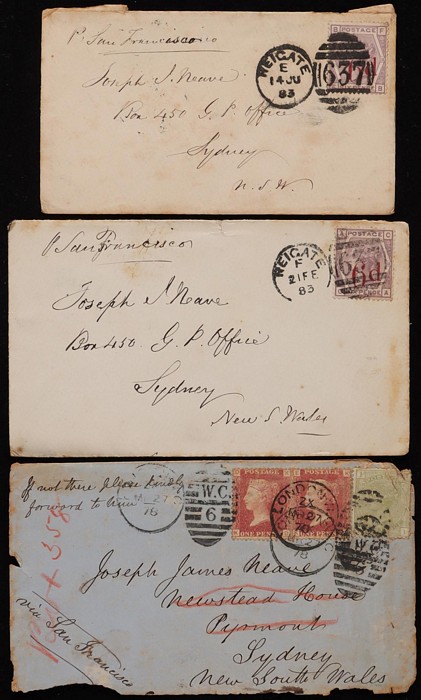 P. San Francisco
REIGATE
E
14 JU
83
637
B POSTAGE F
B
Joseph J. Neave
Box 450 G. P. Office
Sydney
N.S.W.
P. San Francisco
REIGATE
F
21 FE
83
A POSTAGE C
6d
PENCE A
Joseph J. Neave
Box 450. G. P. Office
Sydney
New S. Wales
If not there please kindly
forward to him
27
78
W.C
6
POSTAGE
POSTAGE
ONE PENNY
LONDON
27
78
78
Joseph James Neave
Newstead House
Pyrmont
Sydney
New South Wales
via San Francisco